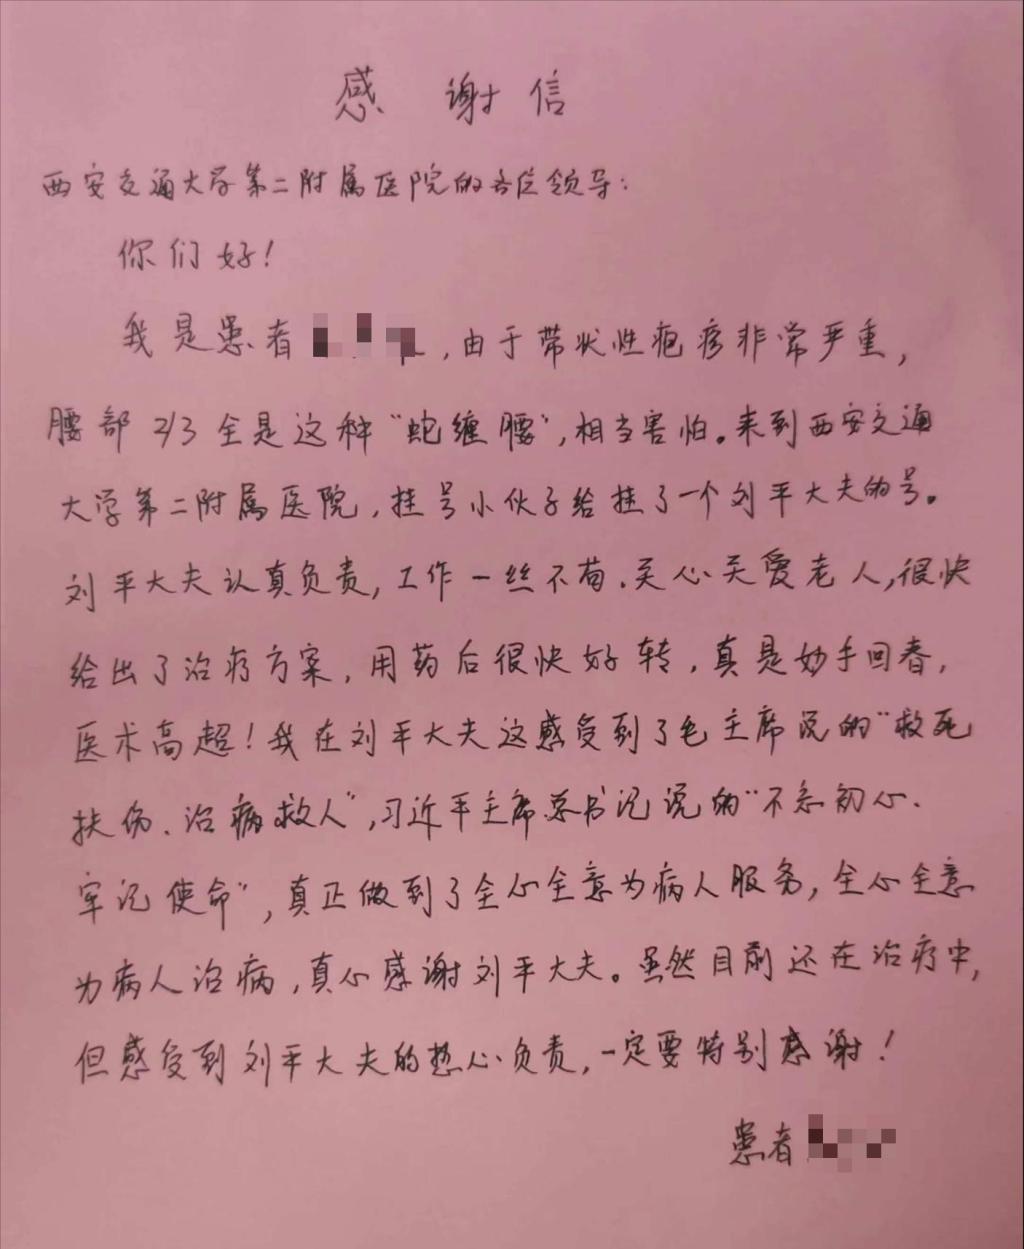 感谢信
西安交通大学第二附属医院的各位领导：
你们好！
我是患者 ，由于带状性疱疹非常严重，
腰部2/3全是这种"蛇缠腰"，相当害怕。来到西安交通
大学第二附属医院，挂号小伙子给挂了一个刘平大夫的号。
刘平大夫认真负责，工作一丝不苟、关心关爱老人，很快
给出了治疗方案，用药后很快好转，真是妙手回春，
医术高超！我在刘平大夫这感受到了毛主席说的"救死
扶伤、治病救人"，习近平主席总书记说的"不忘初心、
牢记使命"，真正做到了全心全意为病人服务，全心全意
为病人治病，真心感谢刘平大夫。虽然目前还在治疗中，
但感受到刘平大夫的热心负责，一定要特别感谢！
患者